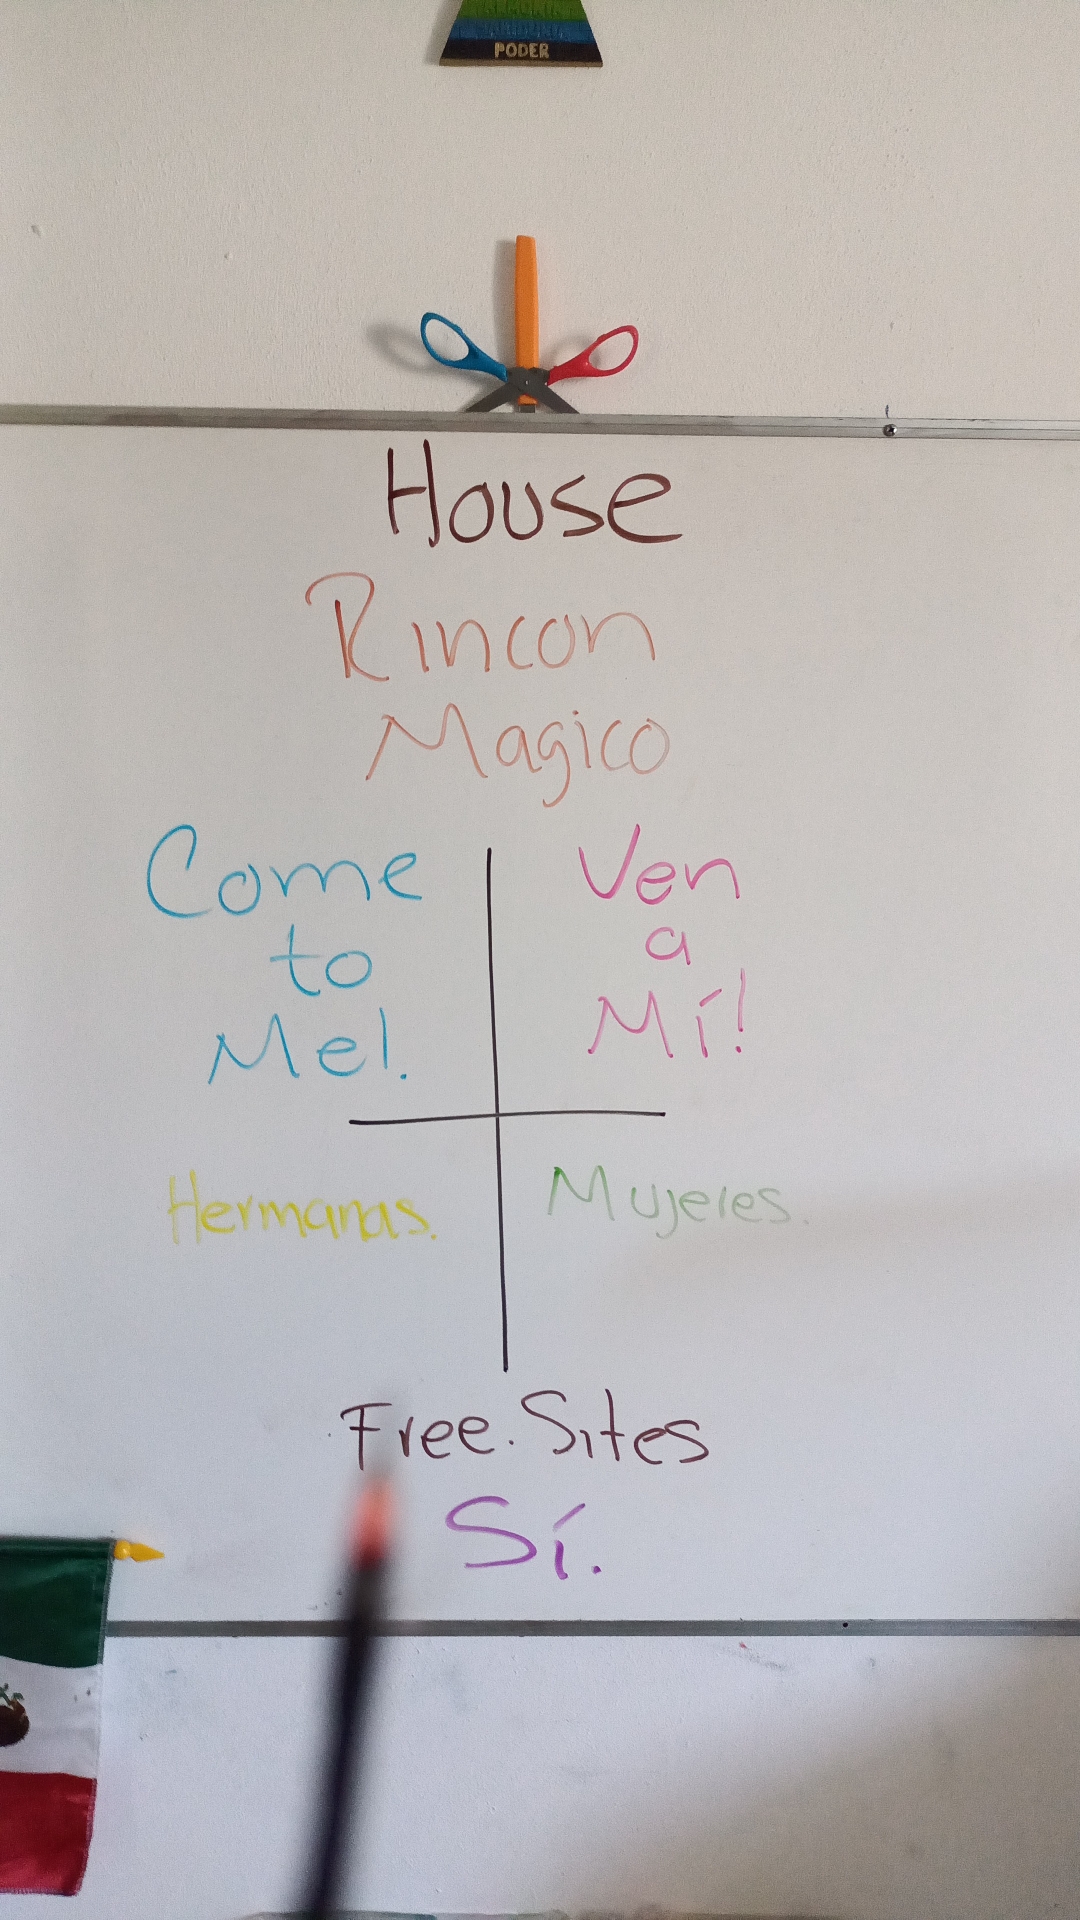 PODER
House
Rincon
Magico
Come
to
Me!.
Ven
a
Mí!
Hermanas.
Mujeres.
Free. Sites
Sí.